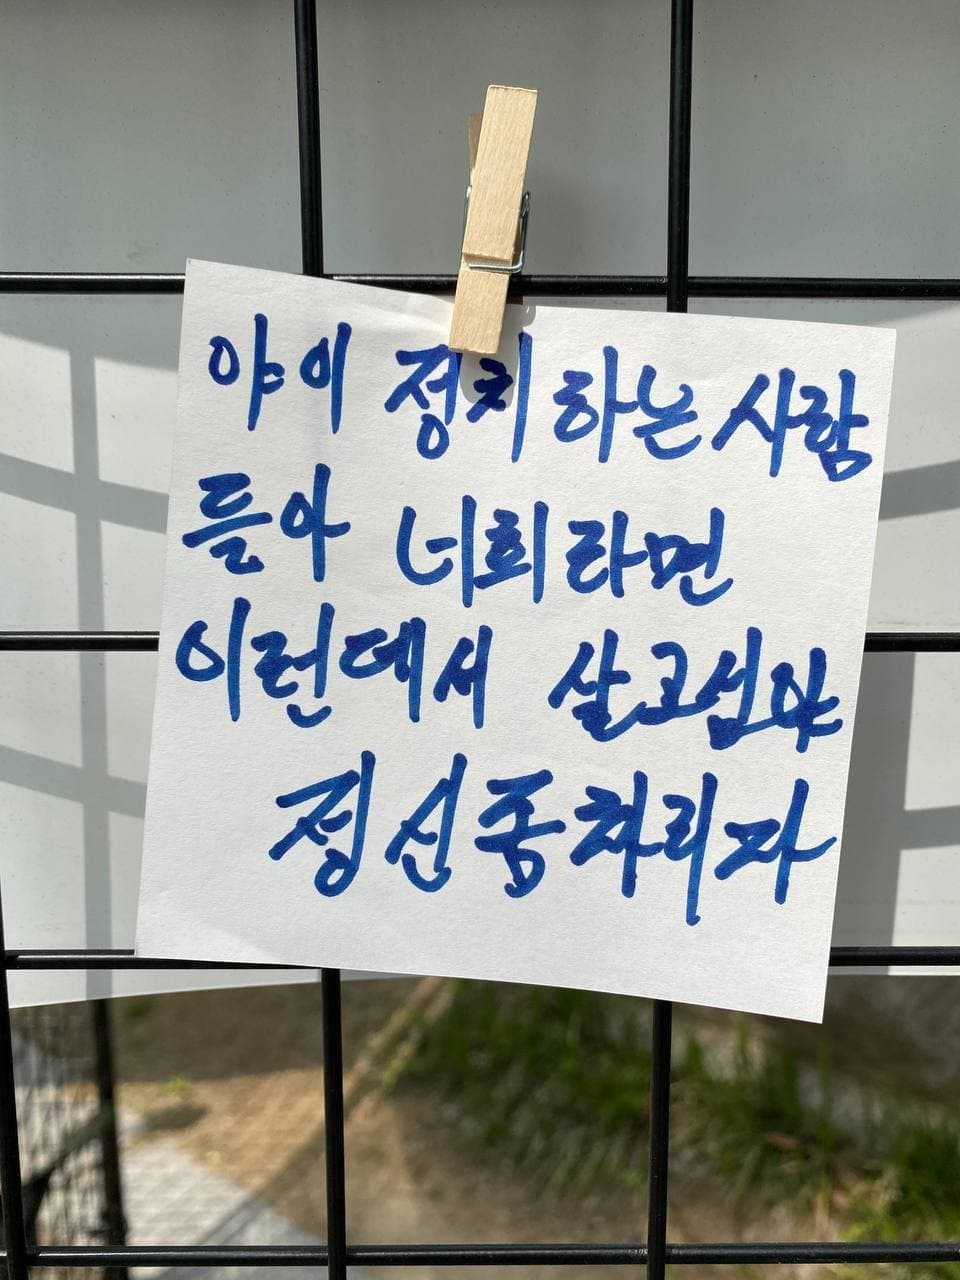 야이 정치하는 사람
들아 너희라면
이런데서 살고섶야
정신좀차리자